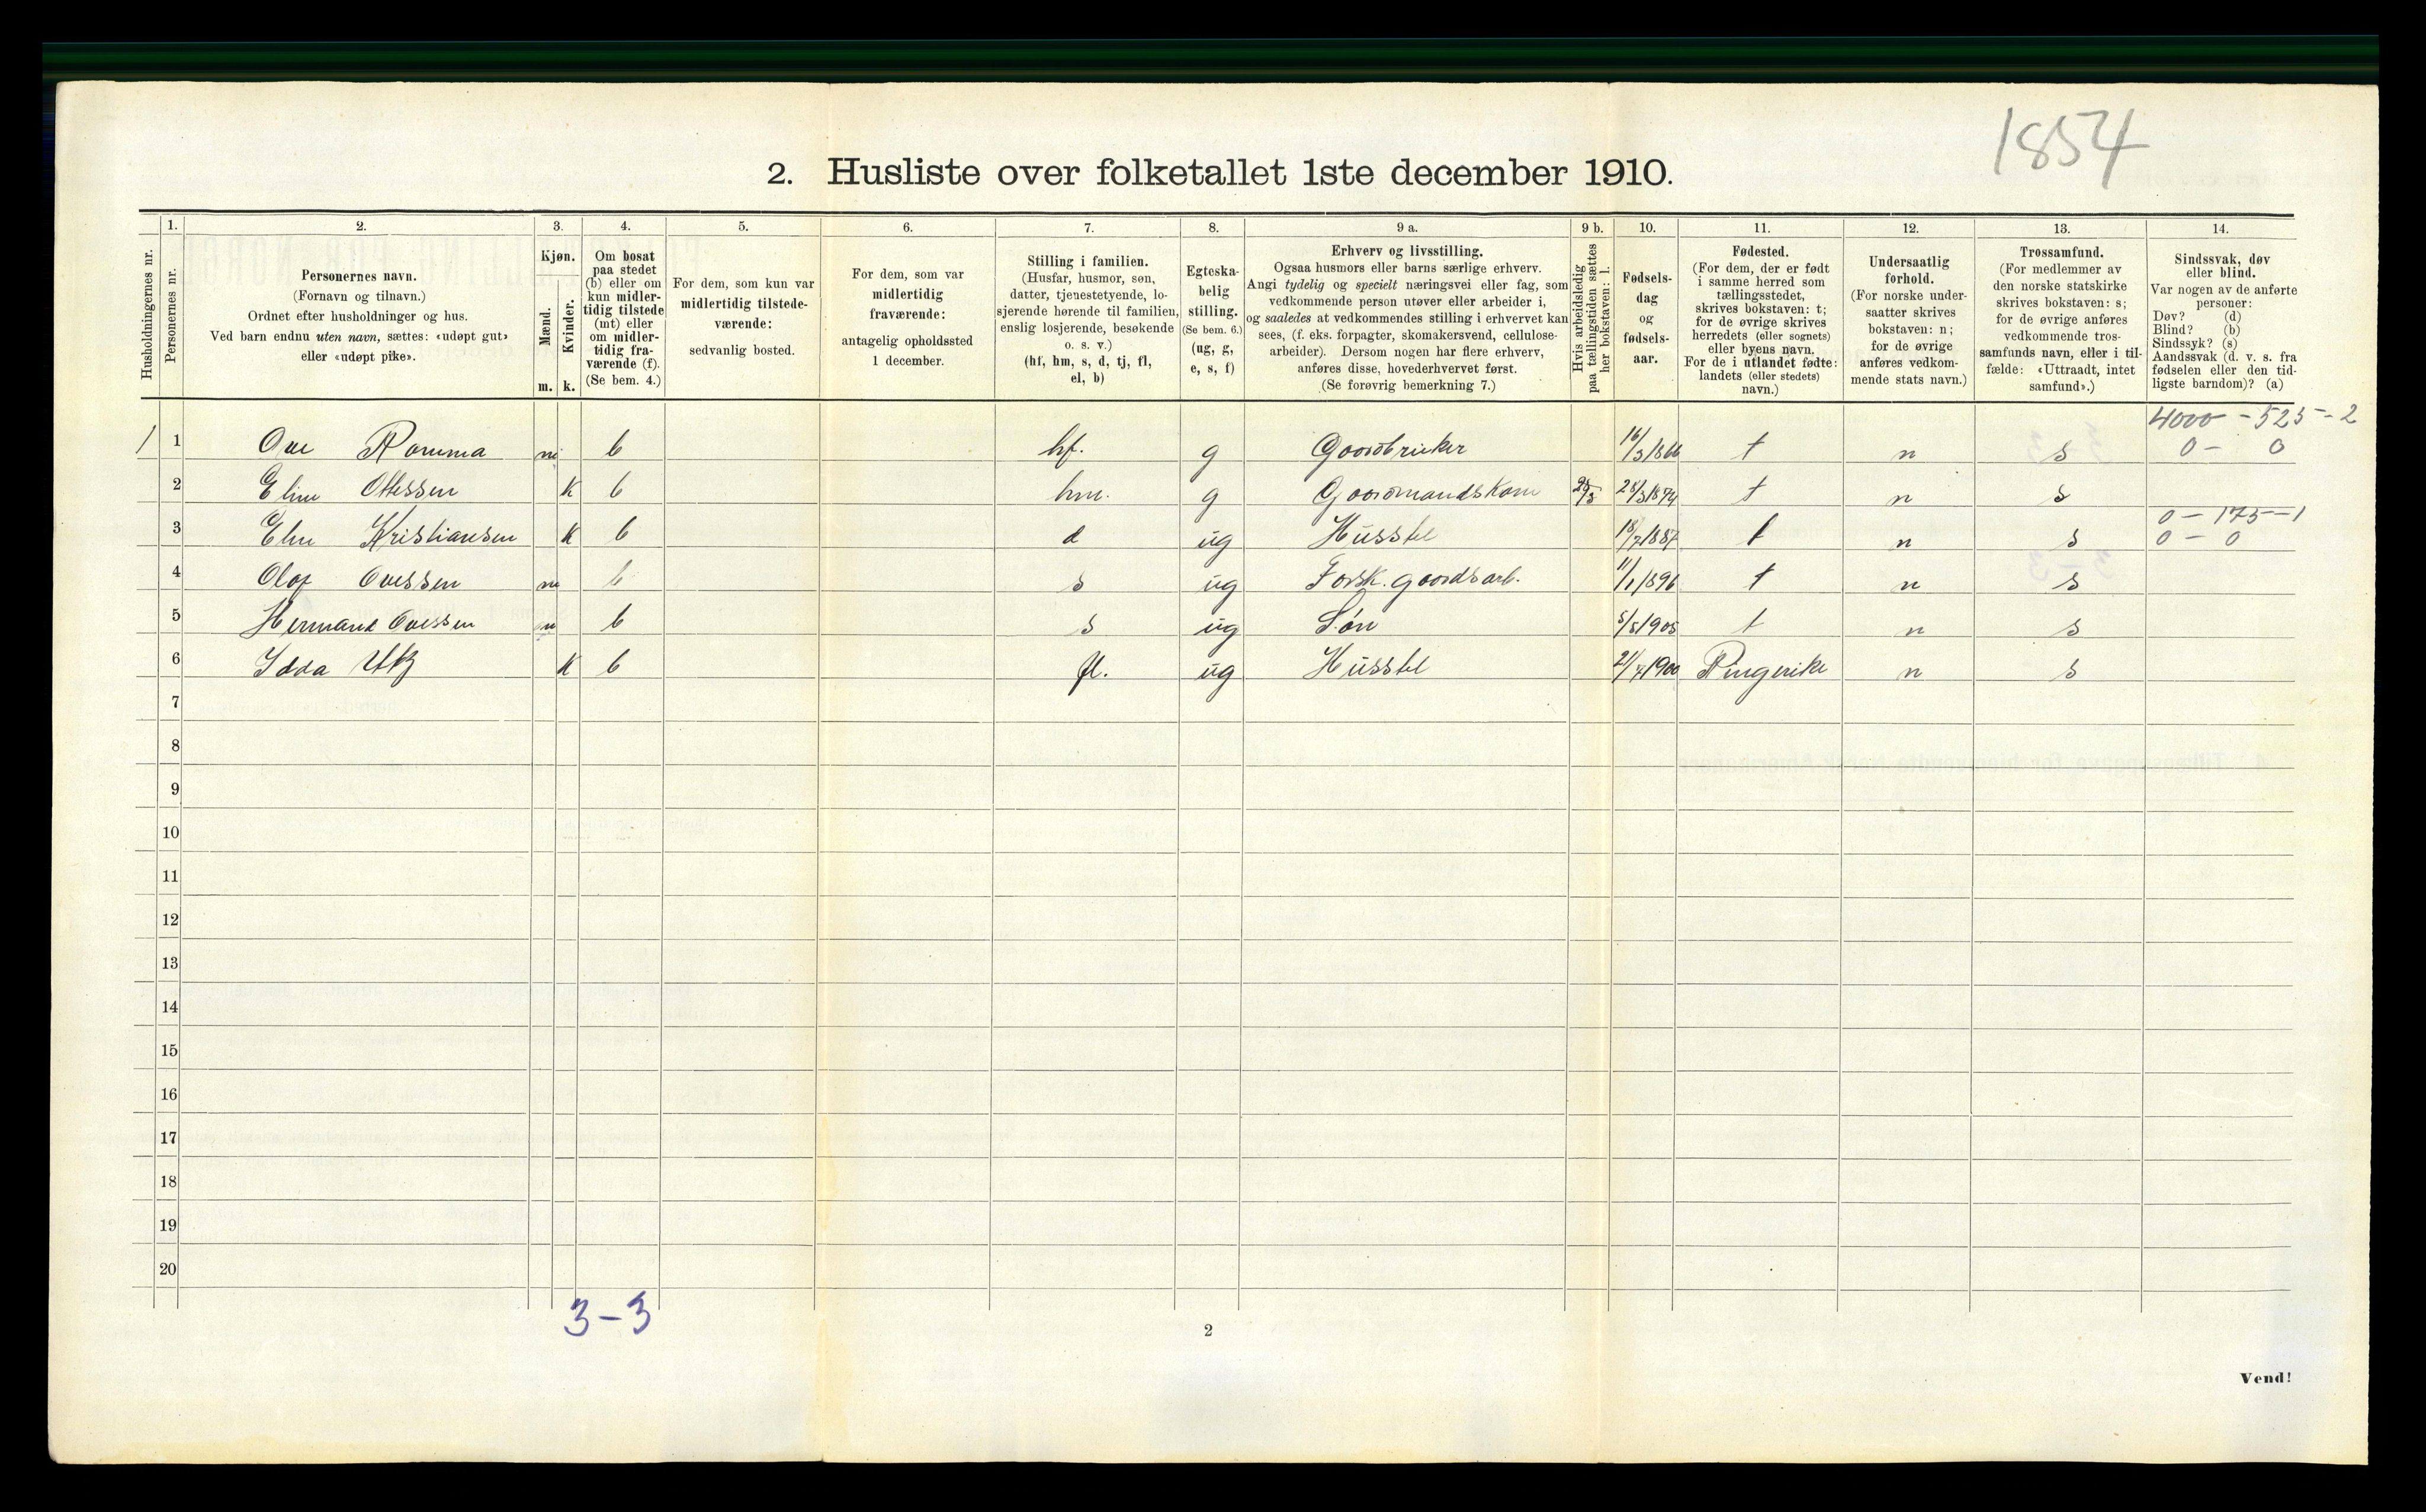 1854
2. Husliste over folketallet 1ste december 1910.
Husholdningernes nr.
1.
Personernes nr.
2.
Personernes navn.
(Fornavn og tilnavn.)
Ordnet efter husholdninger og hus.
Ved barn endnu uten navn, sættes: «udøpt gut»
eller «udøpt pike».
3.
Kjøn.
Mænd.
Kvinder.
m. k.
4.
Om bosat
paa stedet
(b) eller om
kun midler-
tidig tilstede
(mt) eller
om midler-
tidig fra-
værende (f).
(Se bem. 4.)
5.
For dem, som kun var
midlertidig tilstede-
værende:
sedvanlig bosted.
6.
For dem, som var
midlertidig
fraværende:
antagelig opholdssted
1 december.
7.
Stilling i familien.
(Husfar, husmor, søn,
datter, tjenestetyende, lo-
sjerende hørende til familien,
enslig losjerende, besøkende
o. s. v.)
(hf, hm, s, d, tj, fl,
el, b)
8.
Egteska-
belig
stilling.
(Se bem. 6.)
(ug, g,
e, s, f)
9 a.
Erhverv og livsstilling.
Ogsaa husmors eller barns særlige erhverv.
Angi tydelig og specielt næringsvei eller fag, som
vedkommende person utøver eller arbeider i,
og saaledes at vedkommendes stilling i erhvervet kan
sees, (f. eks. forpagter, skomakersvend, cellulose-
arbeider). Dersom nogen har flere erhverv,
anføres disse, hovederhvervet først.
(Se forøvrig bemerkning 7.)
9 b.
Hvis arbeidsledig
paa tællingstiden sættes
her bokstaven: l.
10.
Fødsels-
dag
og
fødsels-
aar.
11.
Fødested.
(For dem, der er født
i samme herred som
tællingsstedet,
skrives bokstaven: t;
for de øvrige skrives
herredets (eller sognets)
eller byens navn.
For de i utlandet fødte:
landets (eller stedets)
navn.)
12.
Undersaatlig
forhold.
(For norske under-
saatter skrives
bokstaven: n;
for de øvrige
anføres vedkom-
mende stats navn.)
13.
Trossamfund.
(For medlemmer av
den norske statskirke
skrives bokstaven: s;
for de øvrige anføres
vedkommende tros-
samfunds navn, eller i til-
fælde: «Uttraadt, intet
samfund».)
14.
Sindssvak, døv
eller blind.
Var nogen av de anførte
personer:
Døv? (d)
Blind? (b)
Sindssyk? (s)
Aandssvak (d. v. s. fra
fødselen eller den tid-
ligste barndom)? (a)
4000 - 525 - 2
1 1 Ove Romma m b hf. g Goordbruker 16/3 1866 t n s 0 - 0
2 Eline Ottessen K b hm. g Goordmandskone 28/3 28/3 1874 t n s
0 - 175 - 1
3 Kristiansen K b d ug Husstel 18/7 1887 t n s 0 - 0
4 Olaf Ovessen m b s ug Forsk. goordsarb. 11/1 1896 t n s
5 Hermand Ovessen m b s ug Søn 5/5 1905 t n s
6 Idda K b fl. ug Husstel 21/7 1900 Ringerike n s
7
8
9
10
11
12
13
14
15
16
17
18
19
20
3-3
2
Vend!